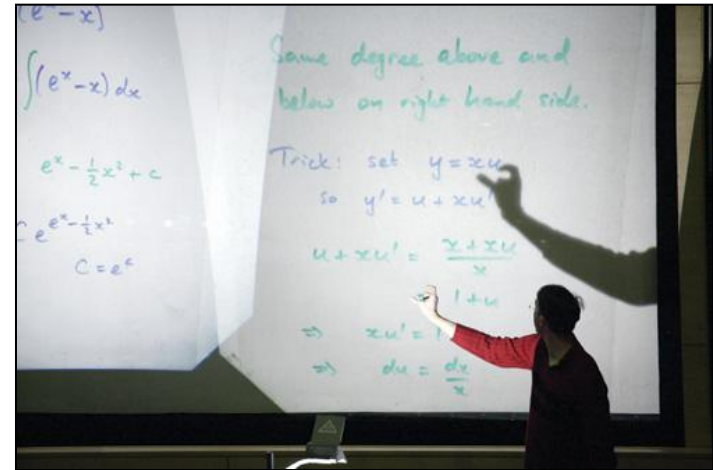 (eˣ - x)
∫(eˣ - x) dx
eˣ - ½x² + c
e^(eˣ - ½x²)
C = eᶜ
Same degree above and
below on right hand side.
Trick: set y = xu
so y' = u + xu'
u + xu' = (x + xu)/x
= 1 + u
⇒ xu' = 1
⇒ du = dx/x